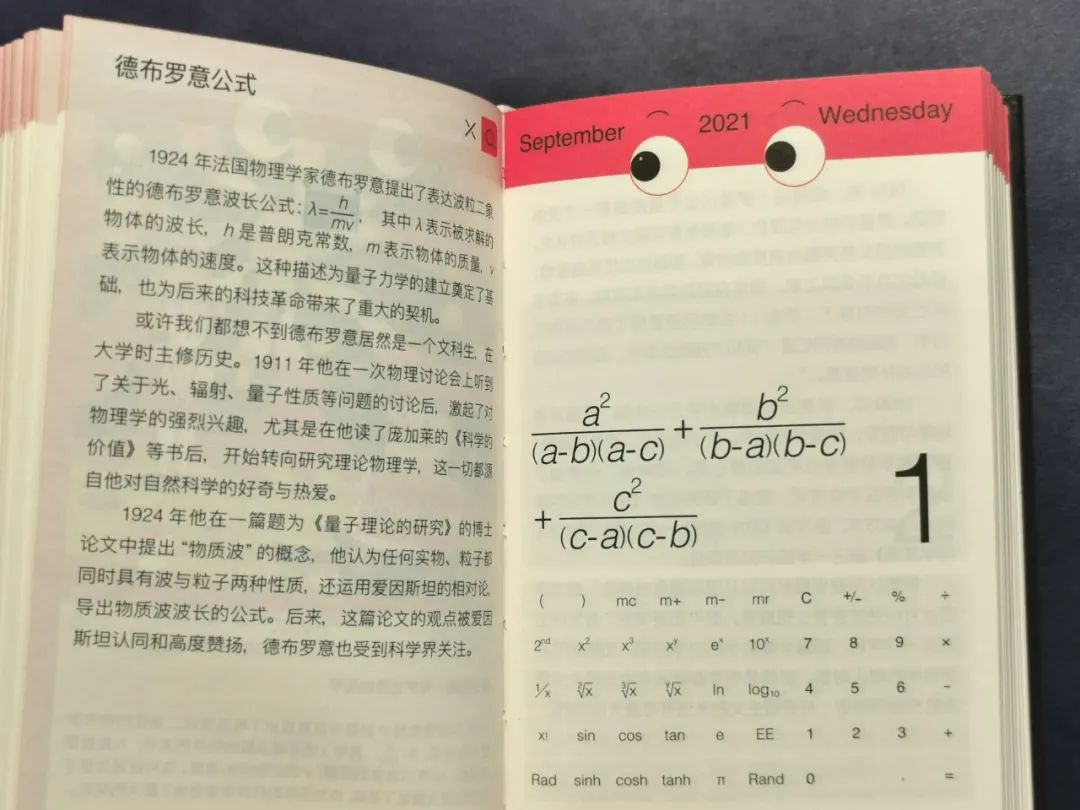 德布罗意公式
X Q
1924 年法国物理学家德布罗意提出了表达波粒二象
性的德布罗意波长公式：λ=h/mv， 其中 λ 表示被求解的
物体的波长，h 是普朗克常数，m 表示物体的质量，v
表示物体的速度。这种描述为量子力学的建立奠定了基
础，也为后来的科技革命带来了重大的契机。
或许我们都想不到德布罗意居然是一个文科生，在
大学时主修历史。1911 年他在一次物理讨论会上听到
了关于光、辐射、量子性质等问题的讨论后，激起了对
物理学的强烈兴趣，尤其是在他读了庞加莱的《科学的
价值》等书后，开始转向研究理论物理学，这一切都源
自他对自然科学的好奇与热爱。
1924 年他在一篇题为《量子理论的研究》的博士
论文中提出“物质波”的概念，他认为任何实物、粒子都
同时具有波与粒子两种性质，还运用爱因斯坦的相对论，
导出物质波波长的公式。后来，这篇论文的观点被爱因
斯坦认同和高度赞扬，德布罗意也受到科学界关注。
September 2021 Wednesday
a²/(a-b)(a-c) + b²/(b-a)(b-c)
+ c²/(c-a)(c-b)
1
( ) mc m+ m- mr C +/- % ÷
2nd x² x³ xʸ eˣ 10ˣ 7 8 9 ×
1/x ²√x ³√x ʸ√x ln log₁₀ 4 5 6 -
x! sin cos tan e EE 1 2 3 +
Rad sinh cosh tanh π Rand 0 . =